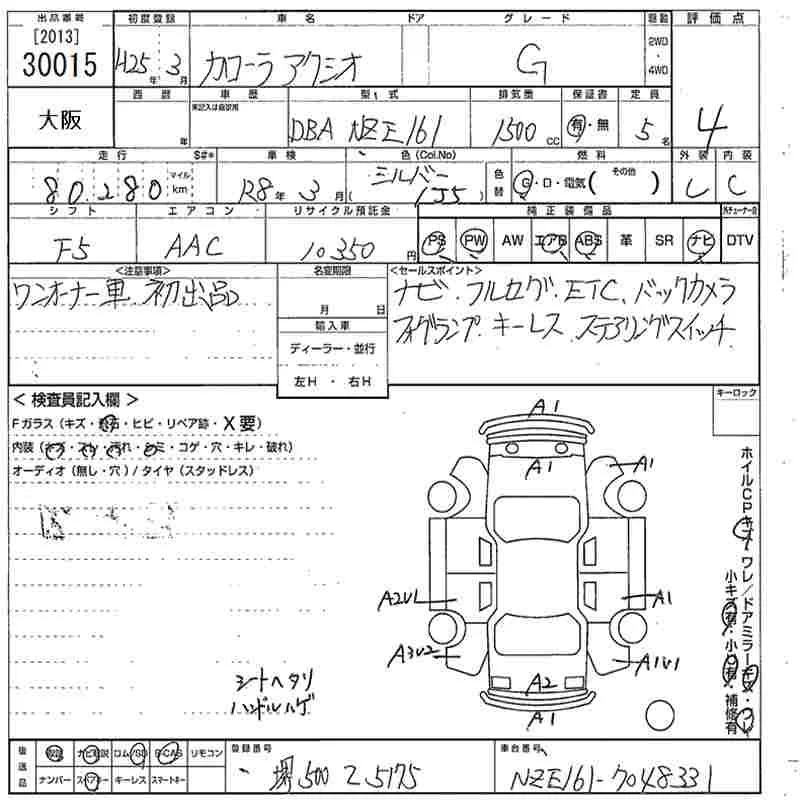 出品番号 初度登録 車名 ドア グレード 駆動 評価点
[2013]
30015 H25年 3月 カローラ アクシオ G 2WD・4WD 4
大阪 西暦 年 車歴 未記入は自家用 型式 DBA NZE161 排気量 1500cc 保証書 有・無 定員 5名
走行 S#* 車検 色(Col.No) 燃料 外装 内装
80,280 マイル km R8年 3月 (シルバー 1J5) 色替 G・D・電気( その他 ) C
シフト エアコン リサイクル預託金 純正装備品 外チューナー台
F5 AAC 10350円 PS PW AW エアB ABS 革 SR ナビ DTV
<注意事項> 名変期限 <セールスポイント>
ワンオーナー車 初出品 月 日 ナビ.フルセグ.ETC.バックカメラ
輸入車 フォグランプ.キーレス ステアリングスイッチ
ディーラー・並行
左H ・ 右H
< 検査員記入欄 > キーロック
Fガラス(キズ・飛石・ヒビ・リペア跡・X要)
内装(キズ・スレ・汚れ・シミ・コゲ・穴・キレ・破れ)
オーディオ(無し・穴)/タイヤ(スタッドレス)
A1
A1 A1
A2U1 A1
A3U2 A1U1
A2
A1
シートヘタリ
ハンドルハゲ
ホイルCPキズ・ワレ/ドアミラーキズ・ワレ
小キズ有・小凹有・補修有
後送品 取説 ナビ取説 ロム/SD B-CAS リモコン 登録番号 車台番号
ナンバー スペアキー キーレス スマートキー 堺500 そ5175 NZE161-7048331